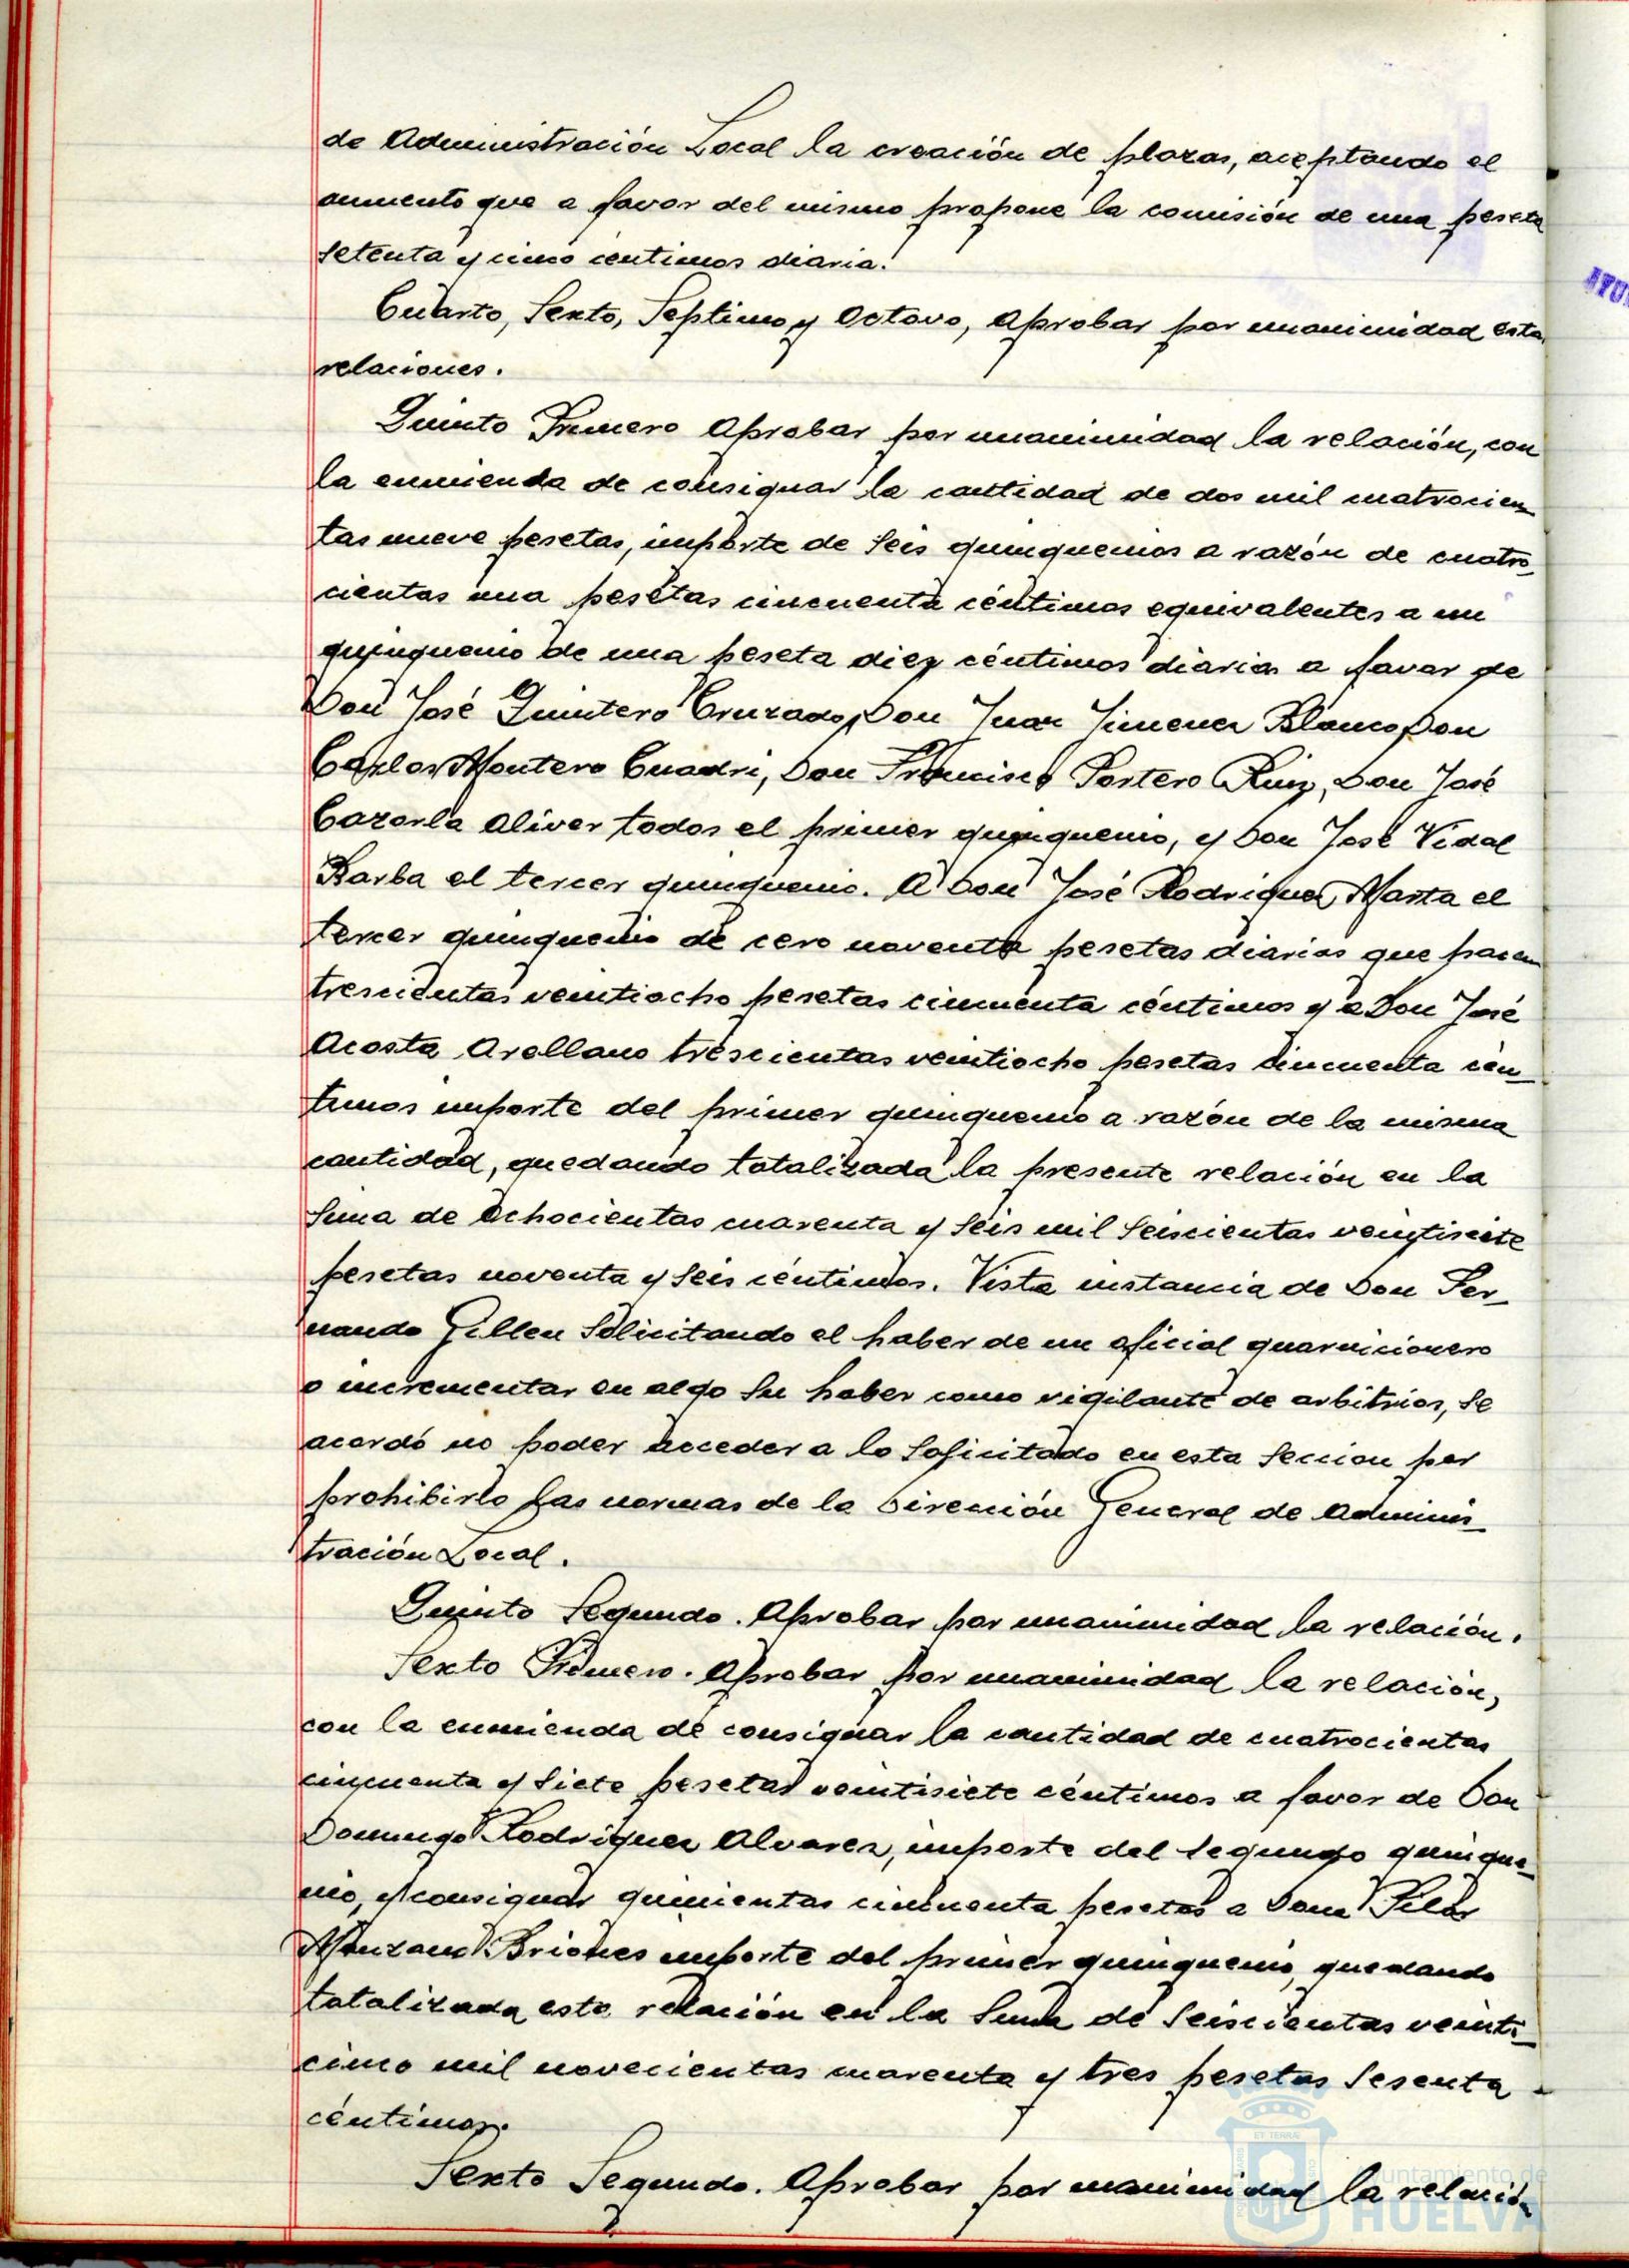 de Administración Local la creación de plazas, aceptando el
aumento que a favor del mismo propone la comisión de una peseta
setenta y cinco centimos diaria.
Cuarto, Sexto, Septimo y Octavo, Aprobar por unanimidad esta
relaciones.
Quinto Primero Aprobar por unanimidad la relación, con
la enmienda de consignar la cantidad de dos mil cuatrocien-
tas nueve pesetas, importe de seis quinquenios a razón de cuatro-
cientas una pesetas cincuenta céntimos equivalentes a un
quinquenio de una peseta diez céntimos diarias a favor de
Don José Quintero Cruzado, Don Juan Jimenez Blanco, Don
Carlos Montero Cuadri, Don Francisco Portero Ruiz, Don José
Cazorla Oliver todos el primer quinquenio, y Don José Vidal
Barba el tercer quinquenio. A Don José Rodriguez Marta el
tercer quinquenio de cero noventa pesetas diarias que hacen
trescientas veintiocho pesetas cincuenta céntimos y a Don José
Acosta Arellano trescientas veintiocho pesetas cincuenta cén-
timos importe del primer quinquenio a razón de la misma
cantidad, quedando totalizada la presente relación en la
suma de ochocientas cuarenta y seis mil seiscientas veintisiete
pesetas noventa y seis céntimos. Vista instancia de Don Fer-
nando Gillen solicitando el haber de un oficial guarnicionero
o incrementar en algo su haber como vigilante de arbitrios, se
acordó no poder acceder a lo solicitado en esta seccion por
prohibirlo las normas de la Dirección General de Adminis-
tración Local.
Quinto Segundo. Aprobar por unanimidad la relación.
Sexto Primero. Aprobar por unanimidad la relación,
con la enmienda de consignar la cantidad de cuatrocientas
cincuenta y siete pesetas veintisiete céntimos a favor de Don
Domingo Rodriguez Alvarez, importe del segundo quinque-
nio, y consignar quinientas cincuenta pesetas a Dona Pilar
Manzano Briones importe del primer quinquenio, quedando
totalizada esta relación en la suma de seiscientas veinti-
cinco mil novecientas cuarenta y tres pesetas sesenta
céntimos.
Sexto Segundo. Aprobar por unanimidad la relación
Ayuntamiento de
HUELVA